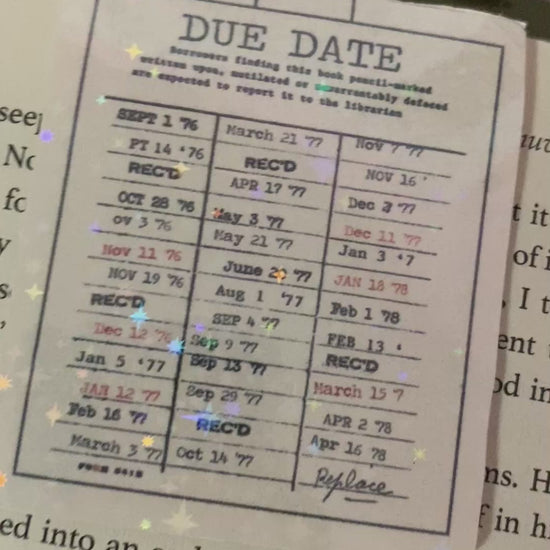 DUE DATE
Borrowers finding this book pencil-marked
written upon, mutilated or unwarrantably defaced
are expected to report it to the librarian
SEPT 1 '76
PT 14 '76
REC'D
OCT 28 '76
ov 3 '76
Nov 11 '76
NOV 19 '76
REC'D
Dec 12 '76
Jan 5 '77
JAN 12 '77
Feb 16 '77
March 3 '77
March 21 '77
REC'D
APR 17 '77
May 3 '77
May 21 '77
June 2 '77
Aug 1 '77
SEP 4 '77
Sep 9 '77
Sep 13 '77
Sep 29 '77
REC'D
Oct 14 '77
Nov 7 '77
NOV 16 '
Dec 2 '77
Dec 11 '77
Jan 3 '7
JAN 18 '78
Feb 1 '78
FEB 13 '
REC'D
March 15 7
APR 2 '78
Apr 16 78
Replace
FORM 6418
seej
No
fo
y
s
ed into an
t it
of i
, I t
ent
od in
ms. H
f in h